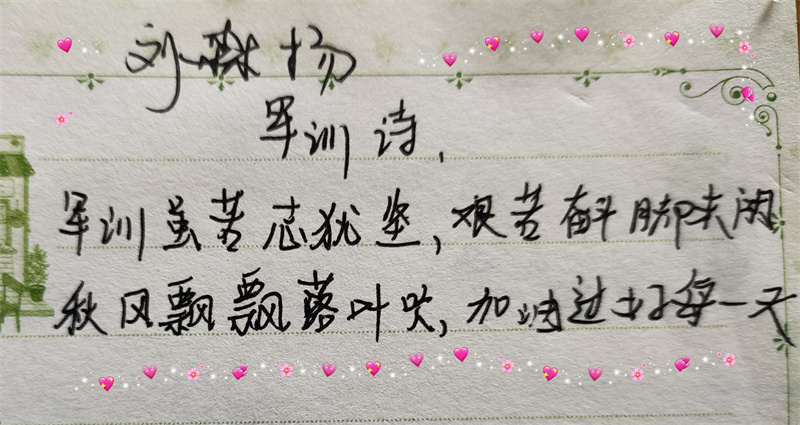 刘 扬
军训诗.
军训虽苦志犹坚,艰苦奋斗脚未闲
秋风飘飘落叶笑,加油过好每一天